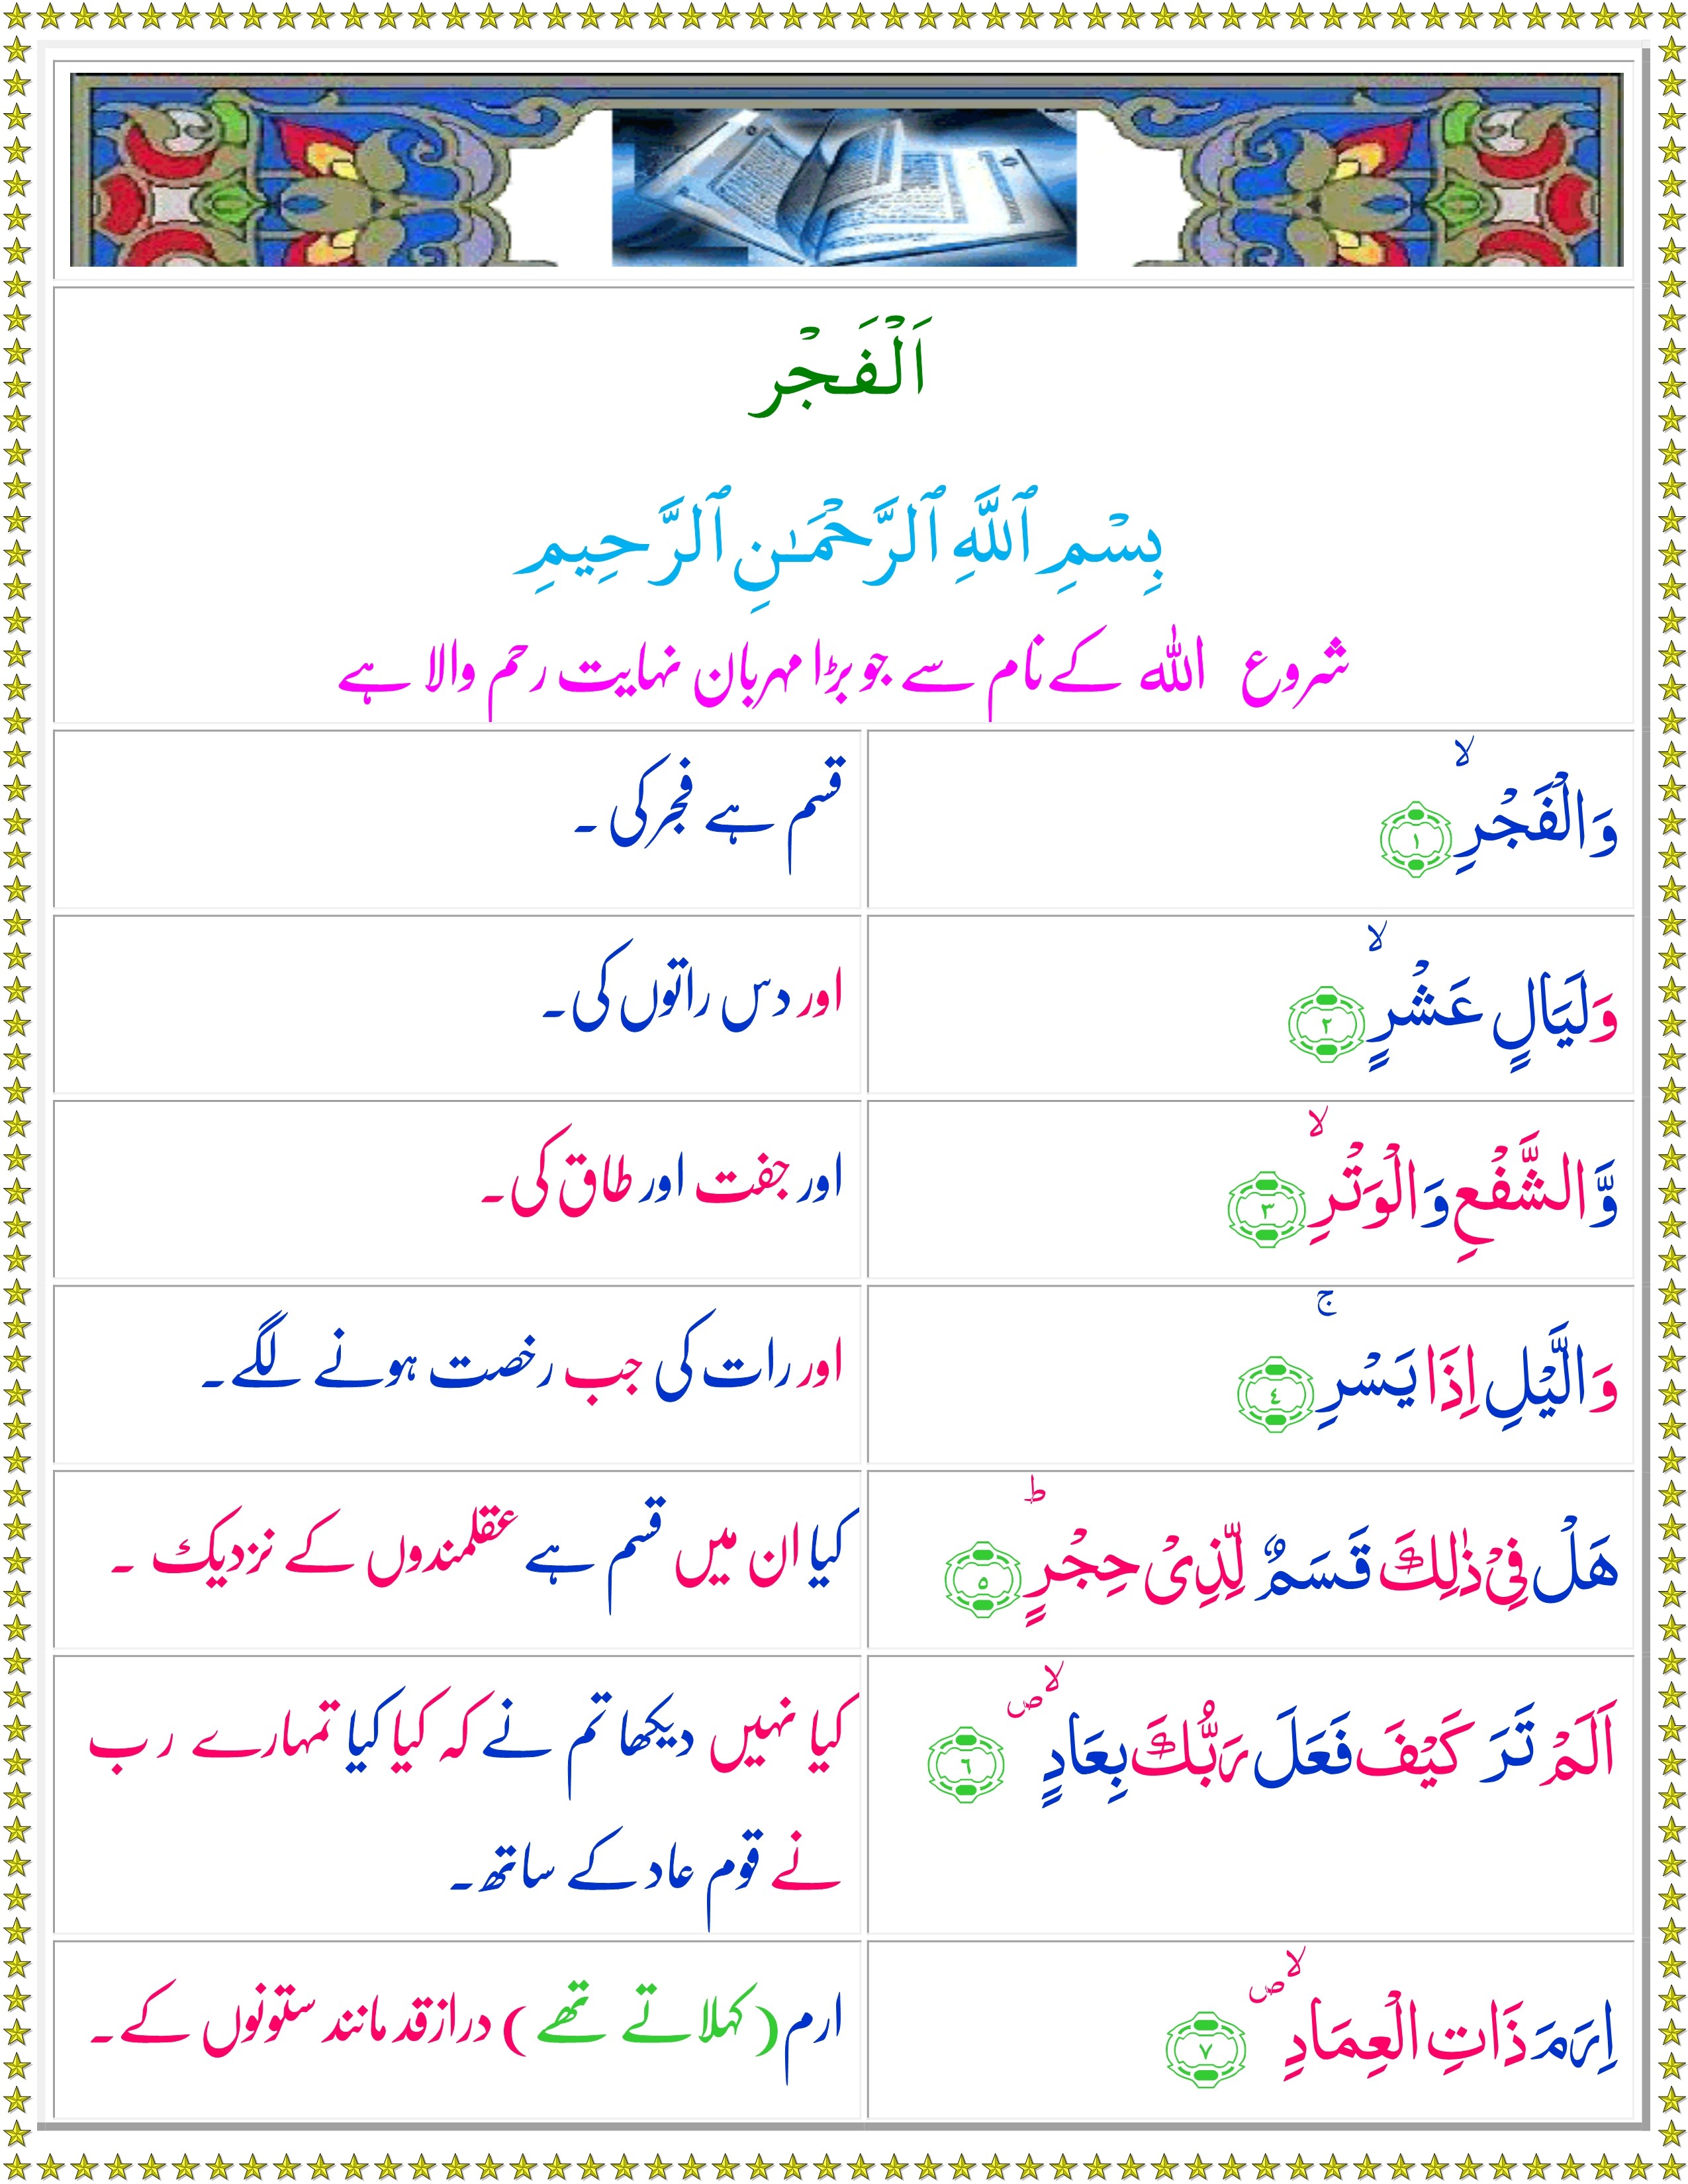 اَلْفَجْر
بِسْمِ ٱللَّهِ ٱلرَّحْمَـٰنِ ٱلرَّحِيمِ
شروع اللہ کے نام سے جو بڑا مہربان نہایت رحم والا ہے
وَالْفَجْرِۙ ﴿۱﴾
قسم ہے فجر کی ۔
وَلَيَالٍ عَشْرٍۙ ﴿۲﴾
اور دس راتوں کی ۔
وَّالشَّفْعِ وَالْوَتْرِۙ ﴿۳﴾
اور جفت اور طاق کی ۔
وَالَّيْلِ اِذَا يَسْرِۚ ﴿٤﴾
اور رات کی جب رخصت ہونے لگے ۔
هَلْ فِىْ ذٰلِكَ قَسَمٌ لِّذِىْ حِجْرٍؕ ﴿۵﴾
کیا ان میں قسم ہے عقلمندوں کے نزدیک ۔
اَلَمْ تَرَ كَيْفَ فَعَلَ رَبُّكَ بِعَادٍۙ ۪ ﴿٦﴾
کیا نہیں دیکھا تم نے کہ کیا کیا تمہارے رب
نے قوم عاد کے ساتھ ۔
اِرَمَ ذَاتِ الْعِمَادِۙ ۪ ﴿۷﴾
ارم (کہلاتے تھے) دراز قد مانند ستونوں کے ۔